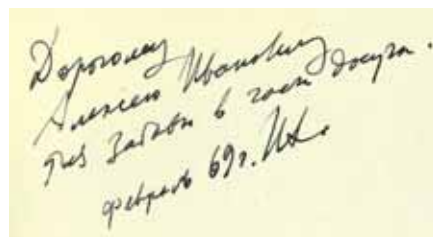 Дорогому
Алексею Ивановичу
для забавы в часы досуга.
февраль 69г.